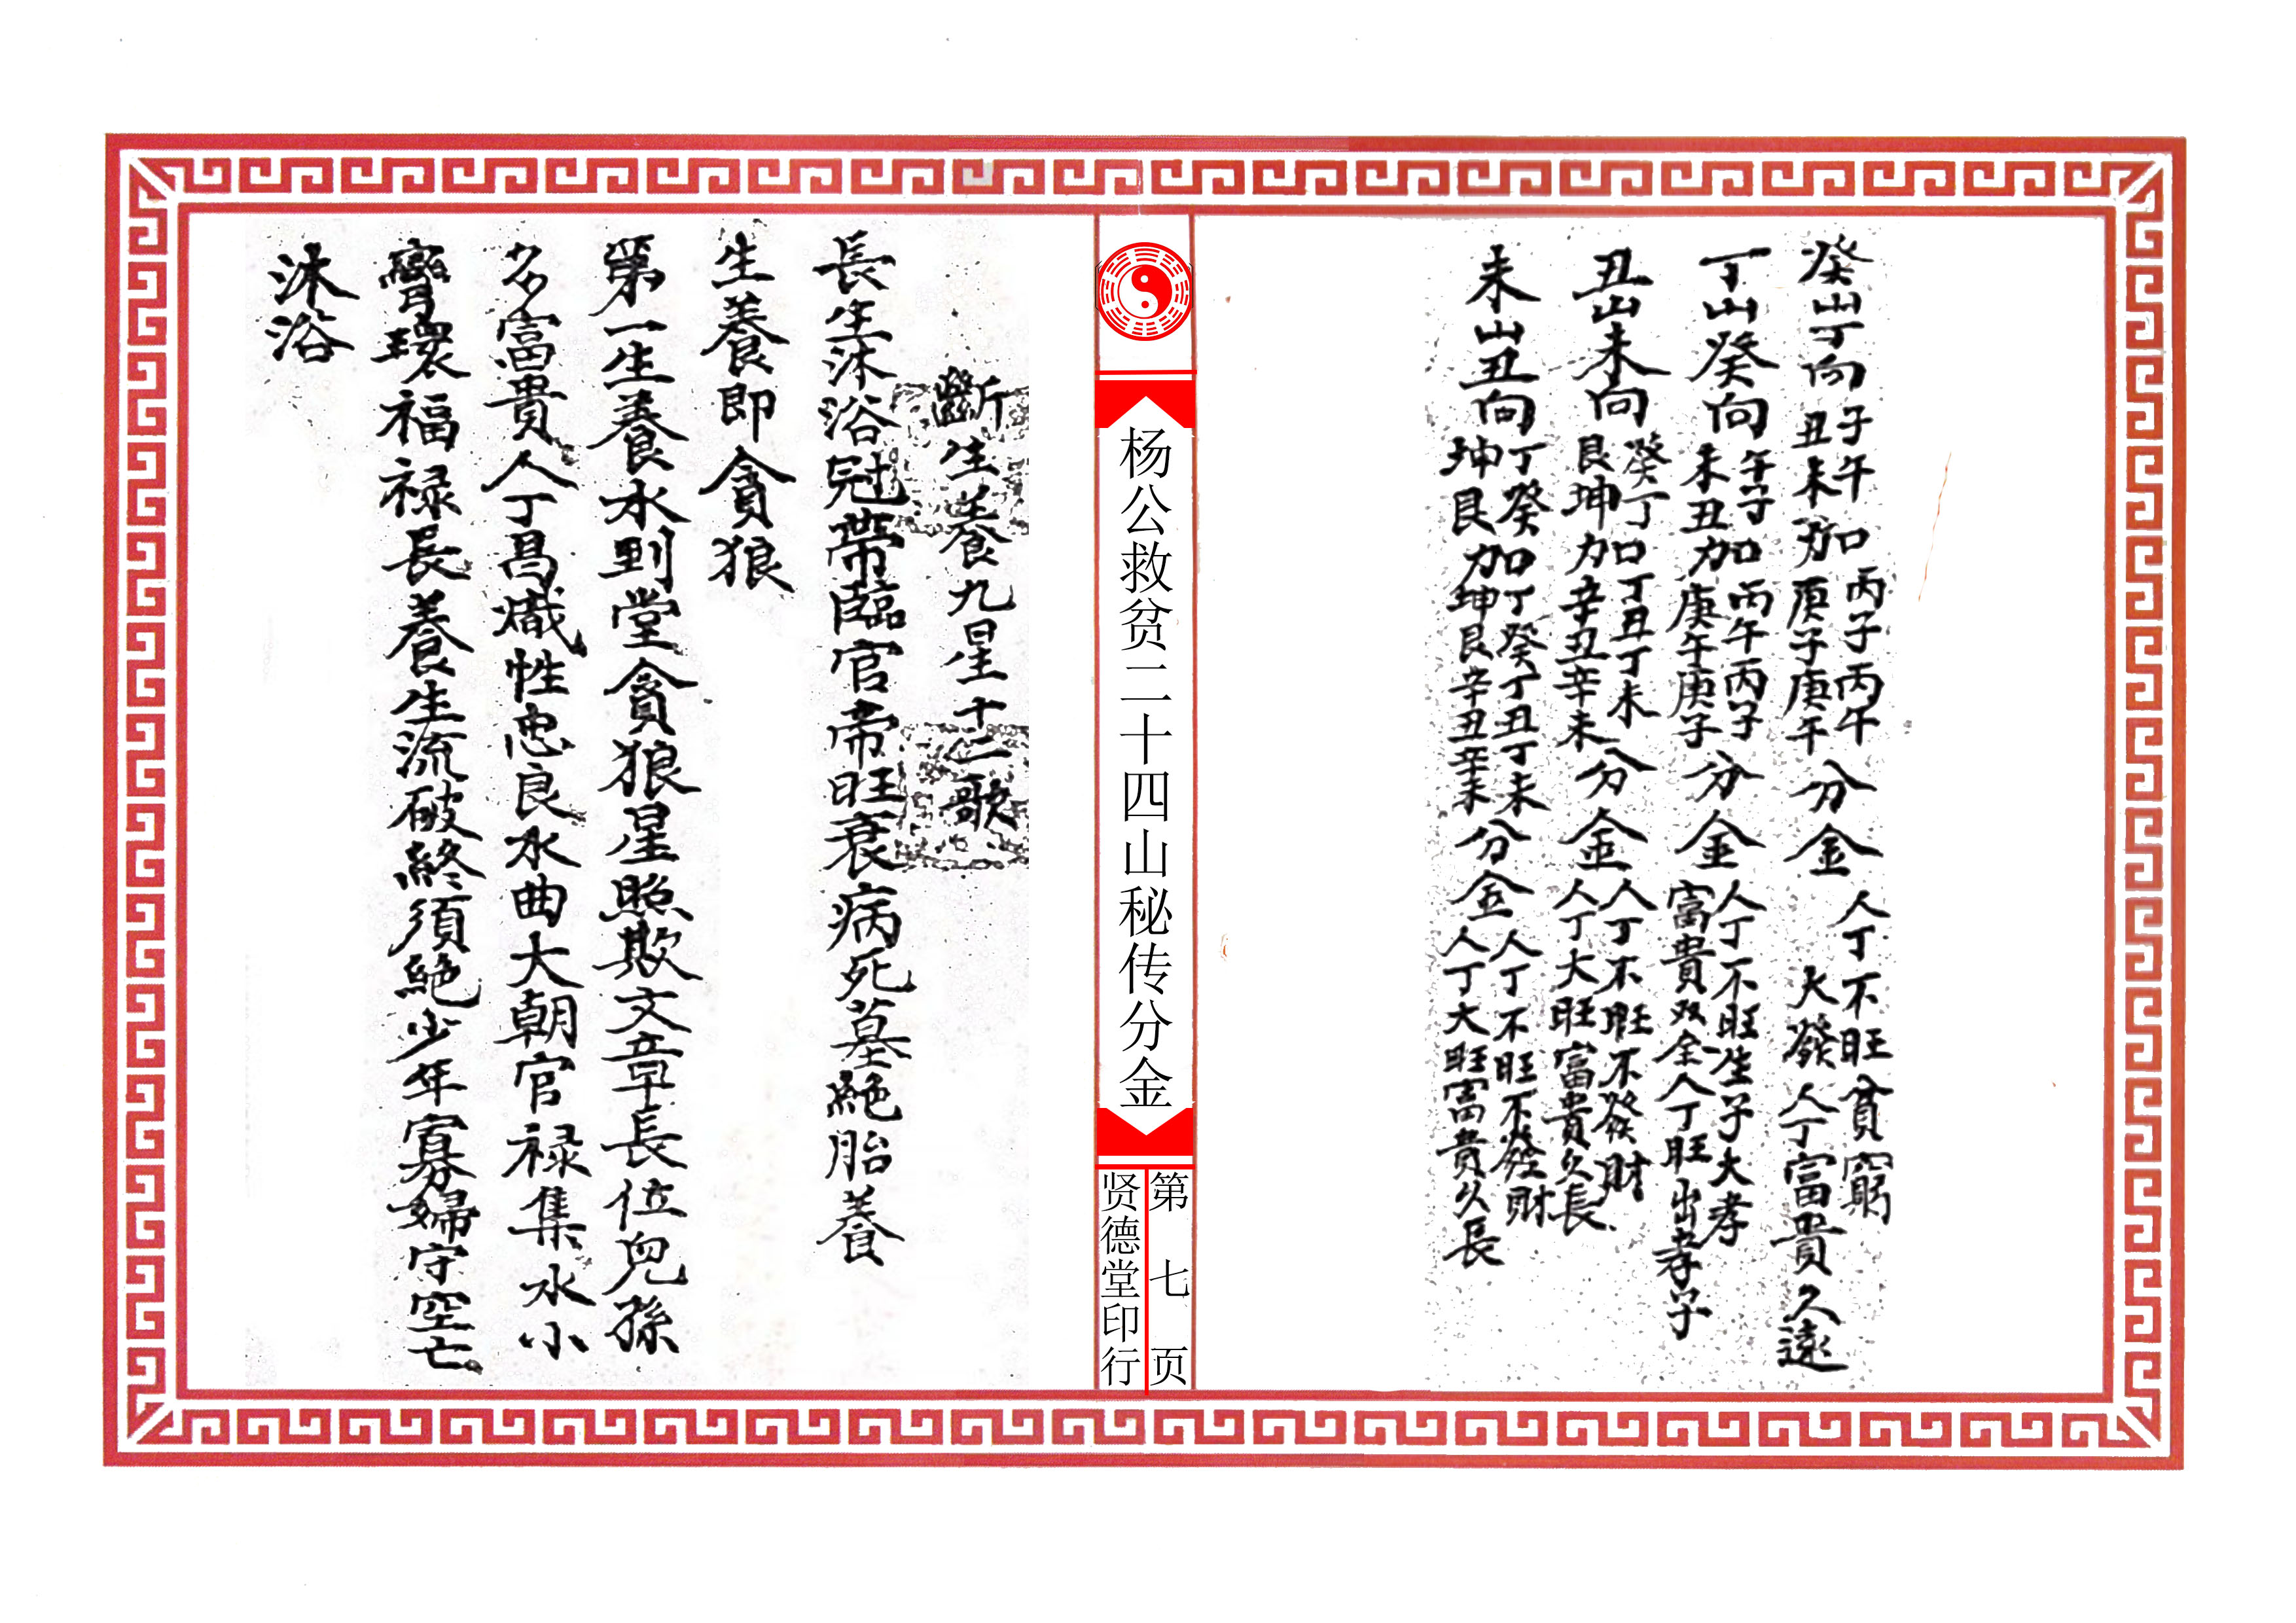 癸山丁向 子午 丑未 加 丙子丙午 庚子庚午 分金 人丁不旺貧窮 大發人丁富貴久遠
丁山癸向 午子 未丑 加 丙午丙子 庚午庚子 分金 人丁不旺生子大孝 富貴双全人丁旺出孝子
丑山未向 癸丁 艮坤 加 丁丑丁未 辛丑辛未 分金 人丁不旺不發財 人丁大旺富貴久長
未山丑向 丁癸 坤艮 加 丁癸丁丑丁未 坤艮辛丑辛未 分金 人丁不旺不發財 人丁大旺富貴久長
杨公救贫二十四山秘传分金
第七页
贤德堂印行
斷生養九星十二歌
長生沐浴冠帶臨官帝旺衰病死墓絕胎養
生養即貪狼
第一生養水到堂貪狼星照欺文章長位兒孫
多富貴人丁昌熾性忠良水曲大朝官禄集水小
彎環福禄長養生流破終須絕少年寡婦守空亡
沐浴